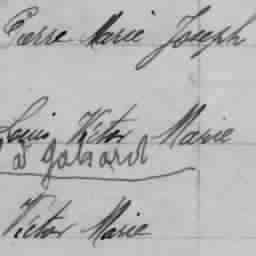 Pierre Marie Joseph
Louis Victor Marie
Victor Marie